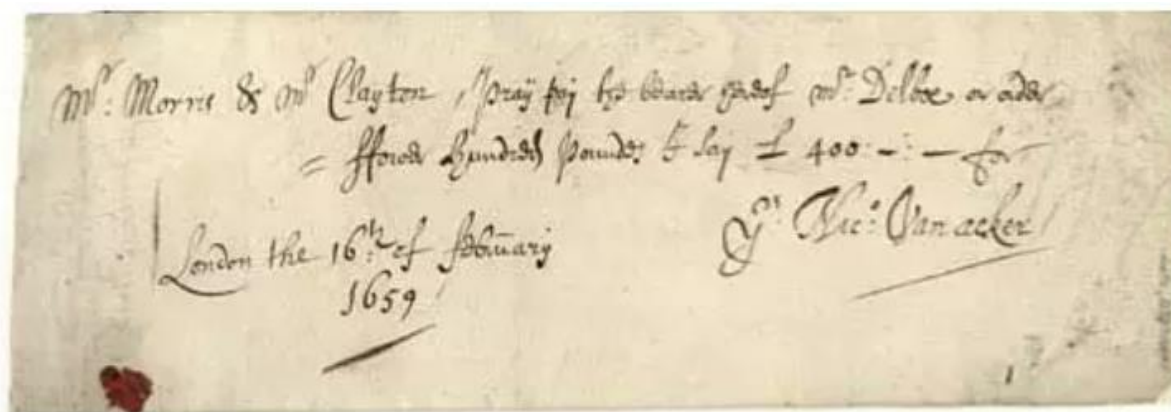 Mr: Morris & Mr Clayton, Pray pay the bearer hereof Mr: Delboe or order
= ffower hundred Pounds I say £ 400 -:- for
London the 16th: of february
Yrs Nic: Vanacker
1659
1